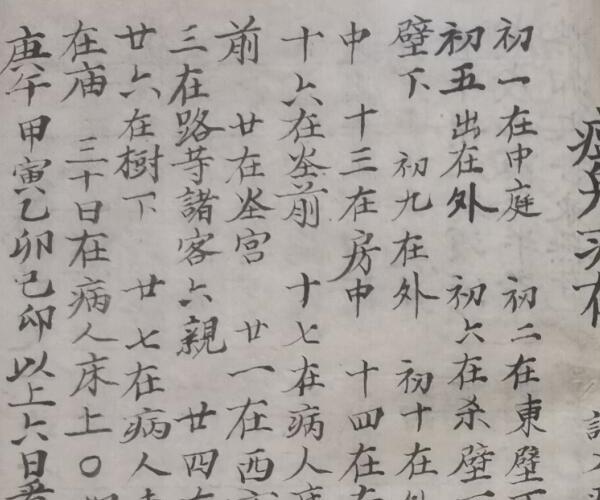 初一在中庭　初二在東壁
初五出在外　初六在杀壁
壁下　初九在外　初十在
中　十三在房中　十四在
十六在灶前　十七在病人
前　廿在灶宮　廿一在西
三在路芽諸客六親　廿四
廿六在樹下　廿七在病人
在庙　三十日在病人床上〇
庚午甲寅乙卯己卯以上六日